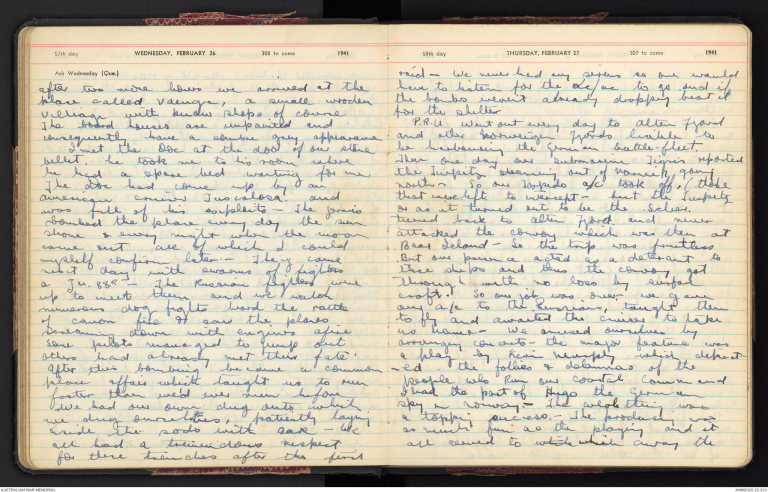 57th day WEDNESDAY, FEBRUARY 26 308 to come 1941
Ash Wednesday (Que.)
after two more hours we arrived at the
place called Vaenga, a small wooden
village with few shops of course.
The board houses are unpainted and
consequently have a sombre grey appearance
I met the Doc at the door of our stone
billet. he took me to his room where
he had a spare bed waiting for me.
The doc had come up by an
American cruiser Tuscaloosa and
was full of his exploits - The Jerries
bombed the place every day the sun
shone & every night when the moon
came out all of which I could
myself confirm later - They came
next day with swarms of fighters
& Ju. 88s - The Russian fighters were
up to meet them and we watch
numerous dog fights heard the rattle
of canon fire & saw the planes
screaming down with engines afire
some pilots managed to jump out
others had already met their fate.
After this bombing became a common-
place affair which taught us to run
faster than we'd ever run before
We had our own dug outs which
we dug ourselves, patiently laying
aside the sods with care - We
all had a tremendous respect
for these trenches after the first
58th day THURSDAY, FEBRUARY 27 307 to come 1941
raid - We never had any sirens so one would
have to listen for the a/c to go and if
the bombs weren't already dropping beat it
for the shelter
P.R.U went out every day to Alten fjord
and other Norweigen fjords liable to
be harbouring the German battle-fleet.
Then one day our submarine Tigris reported
the Turpitz steaming out of Narvick going
north - So our torpedo a/c took off, (those
that were left to intercept - but the Turpitz
or as it turned out to be the Scheer.
turned back to Alten fjord and never
attacked the convoy which was then at
Bear Island - So the trip was fruitless
But our presence acted as a deterant to
these ships and thus the convoy got
through with no loss by surface
craft. So our job was over - we gave
our a/c to the Russians, taught them
to fly and awaited the cruiser to take
us home - We amused ourselves by
arranging concerts - the major feature was
a play by Kevin which depict-
-ed the follies & dilemmas of the
people who Run our coastal command
I had the part of Hugo the German
spy in Norway - The whole thing was
a topping success. - The producing was
as much fun as the playing and it
all served to while away the
AUSTRALIAN WAR MEMORIAL